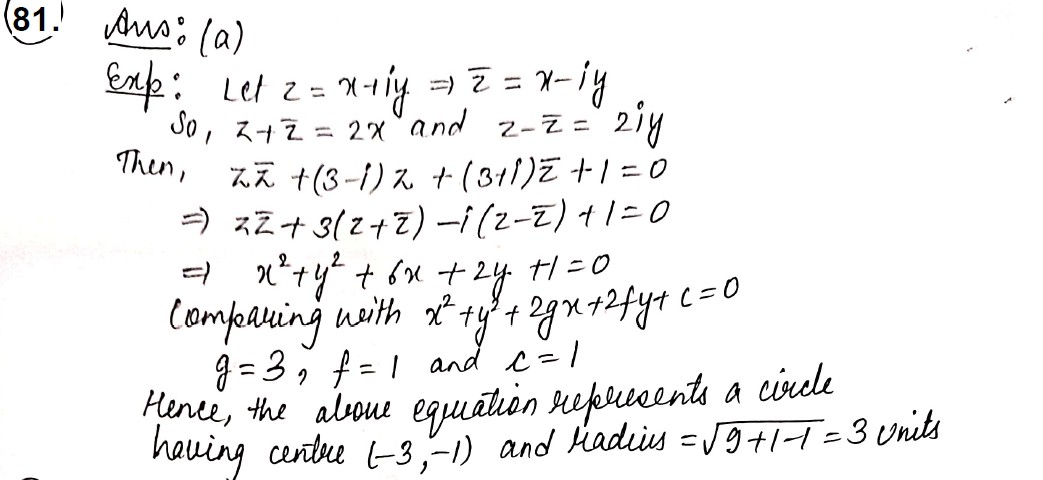 81. Ans: (a)
Exp: Let z = x+iy ⇒ z̄ = x-iy
So, z+z̄ = 2x and z-z̄ = 2iy
Then, zz̄ +(3-i) z + (3+i)z̄ +1=0
⇒ zz̄ + 3(z+z̄) -i(z-z̄) +1=0
⇒ x²+y² + 6x + 2y +1=0
Comparing with x²+y²+2gx+2fy+c=0
g=3, f=1 and c=1
Hence, the above equation represents a circle
having centre (-3,-1) and radius = √9+1-1 = 3 units